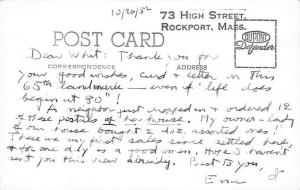 10/26/52
73 HIGH STREET,
ROCKPORT, MASS.
POST CARD
DUPONT
Defender
CORRESPONDENCE
ADDRESS
Dear Whit: Thank you for
your good wishes, card & letter on this
65th landmark – even if "life does
begin at 80"!
A neighbor just popped in & ordered 12
of those posties of her house. My owner-lady
of our house bought 2 doz, assorted ones!
These are my first sales since settled here,
& for one day is a good omen. Hope I haven't
sent you this view already. Best to you,